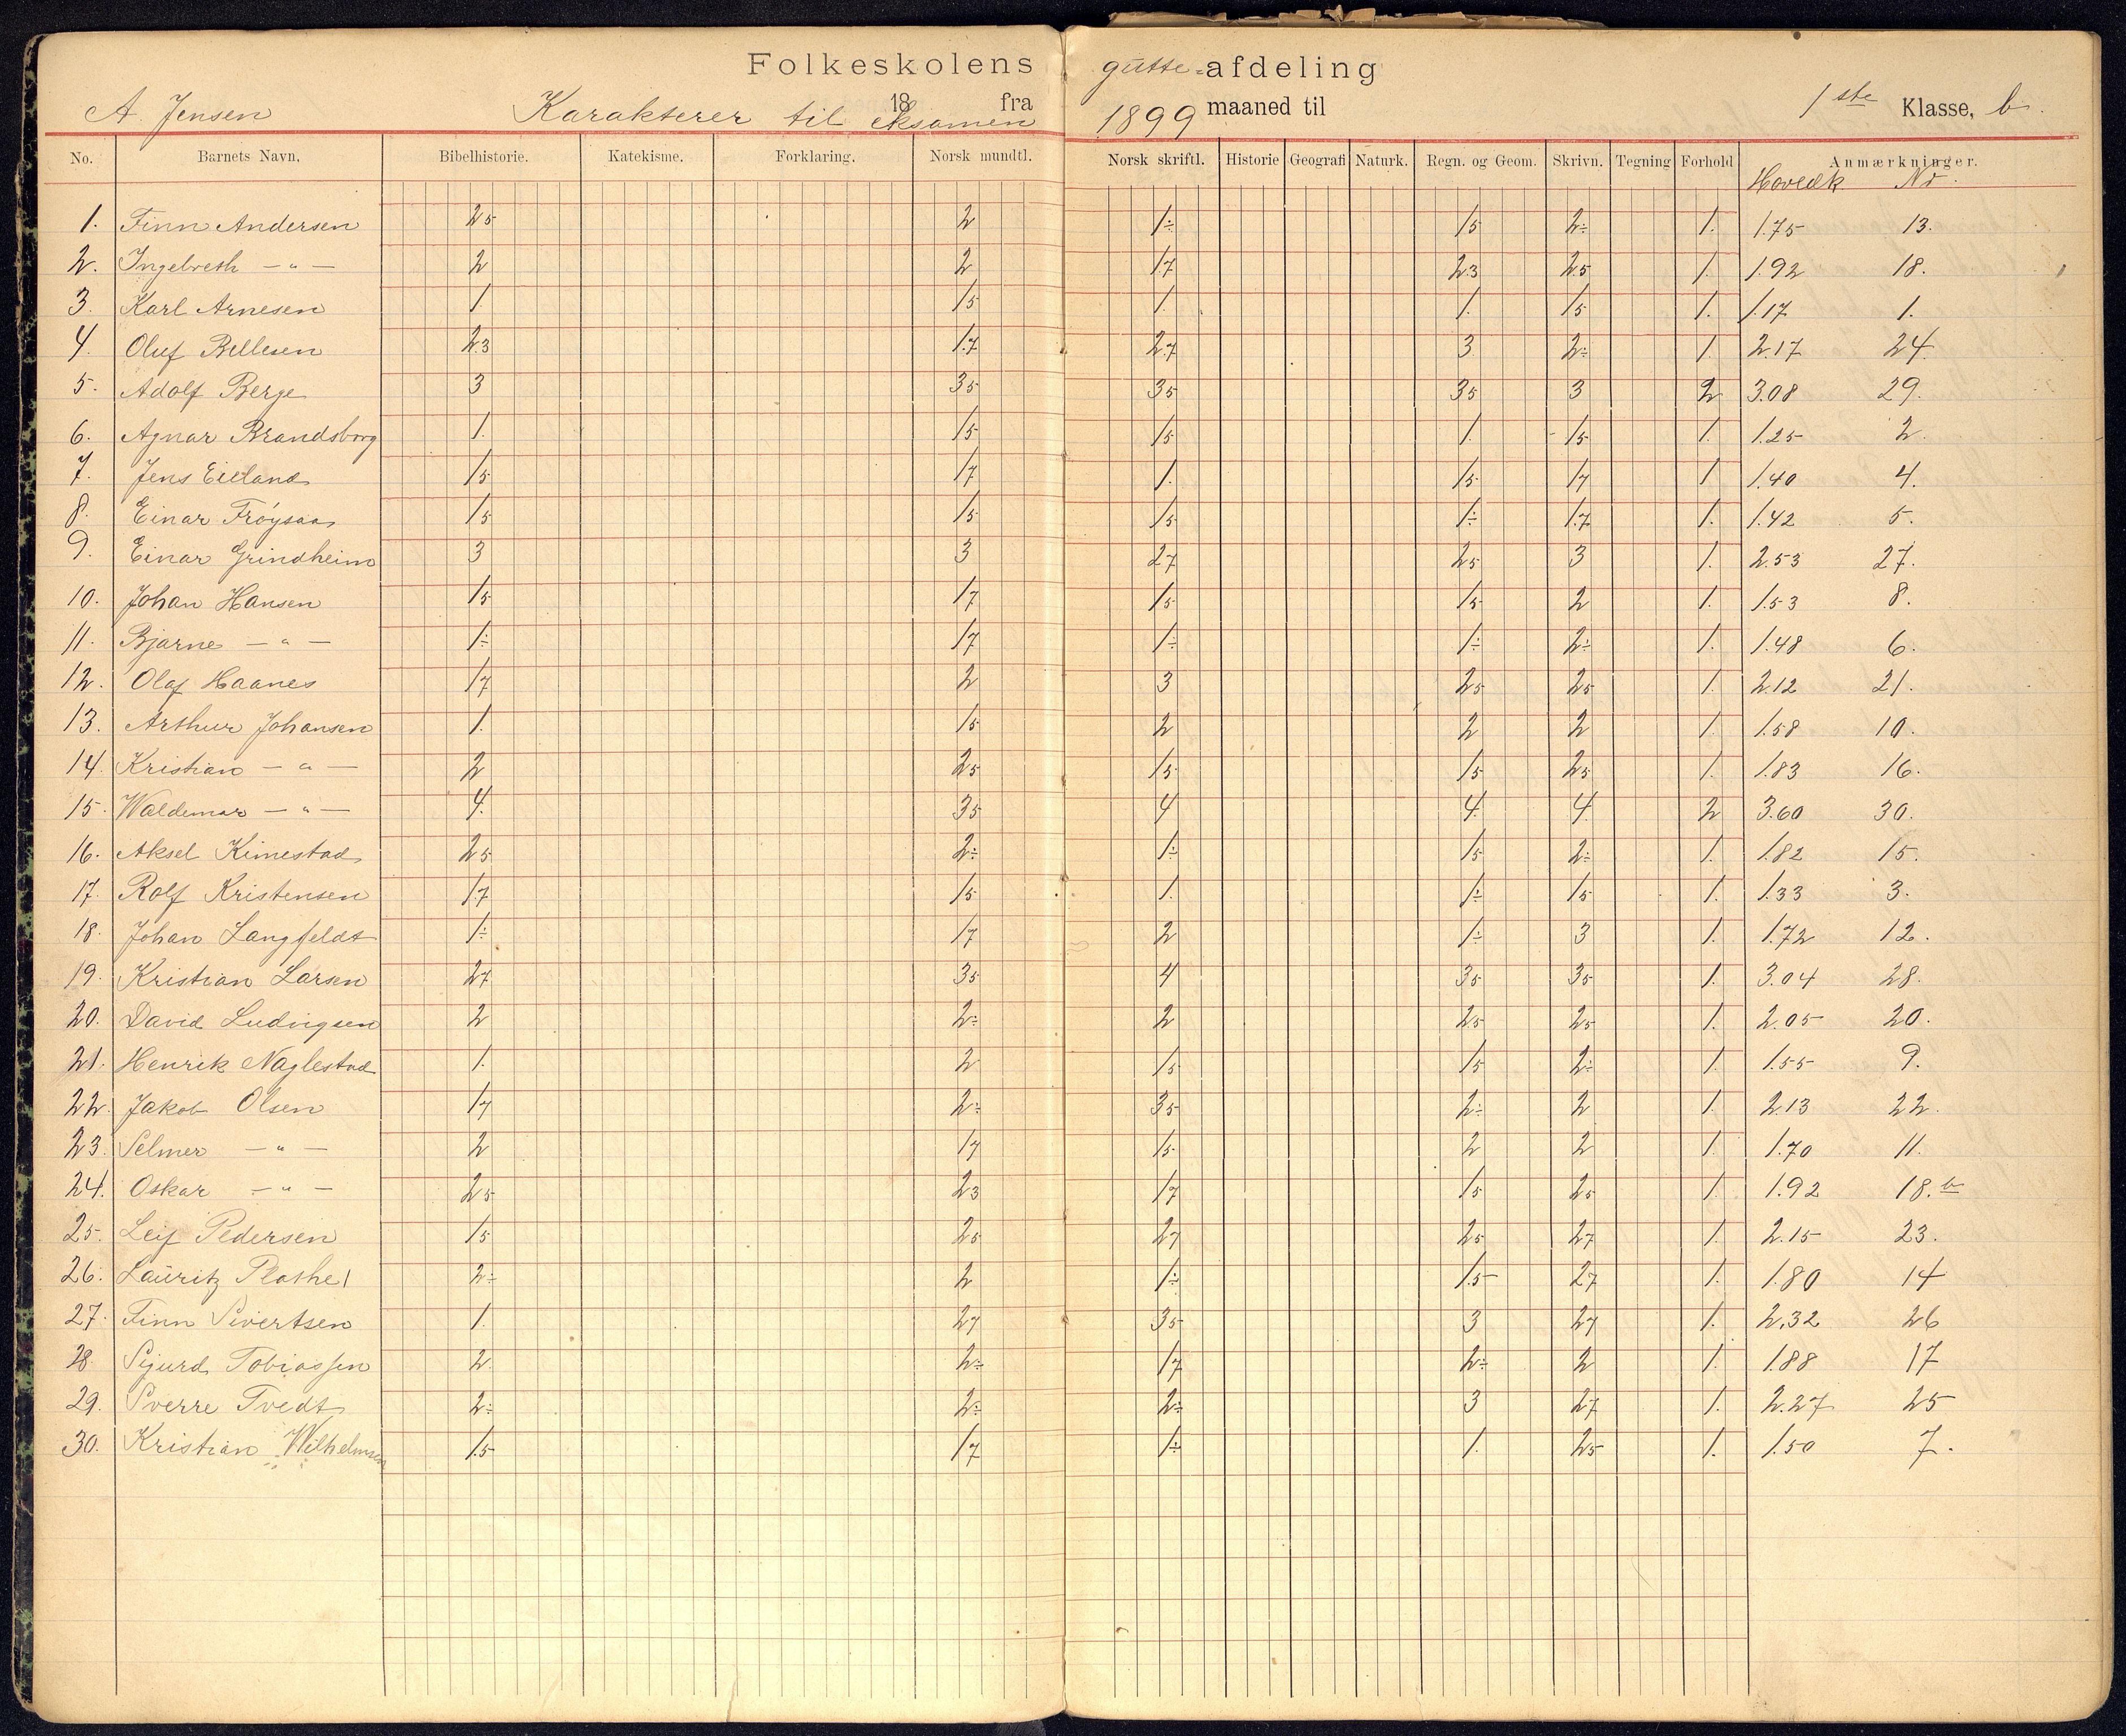 Folkeskolens gutte-afdeling
A. Jensen Karakterer til 18 eksamen fra 1899 maaned til 1ste Klasse, b.
No. Barnets Navn. Bibelhistorie. Katekisme. Forklaring. Norsk mundtl. Norsk skriftl. Historie Geografi Naturk. Regn. og Geom. Skrivn. Tegning Forhold Anmærkninger.
Hovedk No.
1. Finn Andersen 25 2 1÷ 15 2÷ 1. 1.75 13.
2. Ingelreth — " — 2 2 17 2.3 25 1. 1.92 18.
3. Karl Arnesen 1. 15 1. 1. 15 1. 1.17 1.
4. Oluf Bellesen 2.3 1.7 2.7 3 2÷ 1. 2.17 24
5. Adolf Berge 3 35 35 35 3 2 3.08 29.
6. Agnar Brandsborg 1. 15 15 1. 15 1. 1.25 2.
7. Jens Eieland 15 17 1. 15 17 1 1.40 4.
8. Einar Frøysaa 15 15 15 1÷ 1.7 1. 1.42 5.
9. Einar Grindheim 3 3 27 25 3 1. 2.53 27.
10. Johan Hansen 15 17 15 15 2 1. 1.53 8.
11. Bjarne — " — 1÷ 17 1÷ 1÷ 2÷ 1. 1.48 6.
12. Olaf Haanes 17 2 3 25 25 1. 2.12 21.
13. Arthur Johansen 1. 15 2 2 2 1. 1.58 10.
14. Kristian — " — 2 25 15 15 25 1. 1.83 16.
15. Waldemar — " — 4. 35 4 4 4 2 3.60 30.
16. Aksel Kimestad 25 2÷ 1÷ 15 2÷ 1. 1.82 15.
17. Rolf Kristensen 1.7 15 1. 1÷ 15 1. 1.33 3.
18. Johan Langfeldt 1÷ 17 2 1÷ 3 1. 1.72 12.
19. Kristian Larsen 27 35 4 35 35 1. 3.04 28.
20. David Ludvigsen 2 2÷ 2 25 25 1. 2.05 20.
21. Henrik Naglestad 1. 2 15 15 2÷ 1. 1.55 9.
22. Jakob Olsen 17 2÷ 35 2÷ 2 1. 2.13 22.
23. Selmer — " — 2 17 15 2 2 1. 1.70 11.
24. Oskar — " — 25 23 17 15 25 1. 1.92 18. b
25. Leif Pedersen 15 25 27 25 27 1 2.15 23.
26. Lauritz 2÷ 2 1÷ 1.5 27 1. 1.80 14
27. Finn Sivertsen 1. 27 35 3 27 1. 2.32 26
28 Sigurd Tobiassen 2. 2÷ 17 2÷ 2 1. 1.88 17
29. Sverre Tvedt 2÷ 2÷ 2÷ 3 27 1. 2.27 25
30. Kristian Wilhelmsen 1.5 17 1÷ 1. 25 1. 1.50 7.